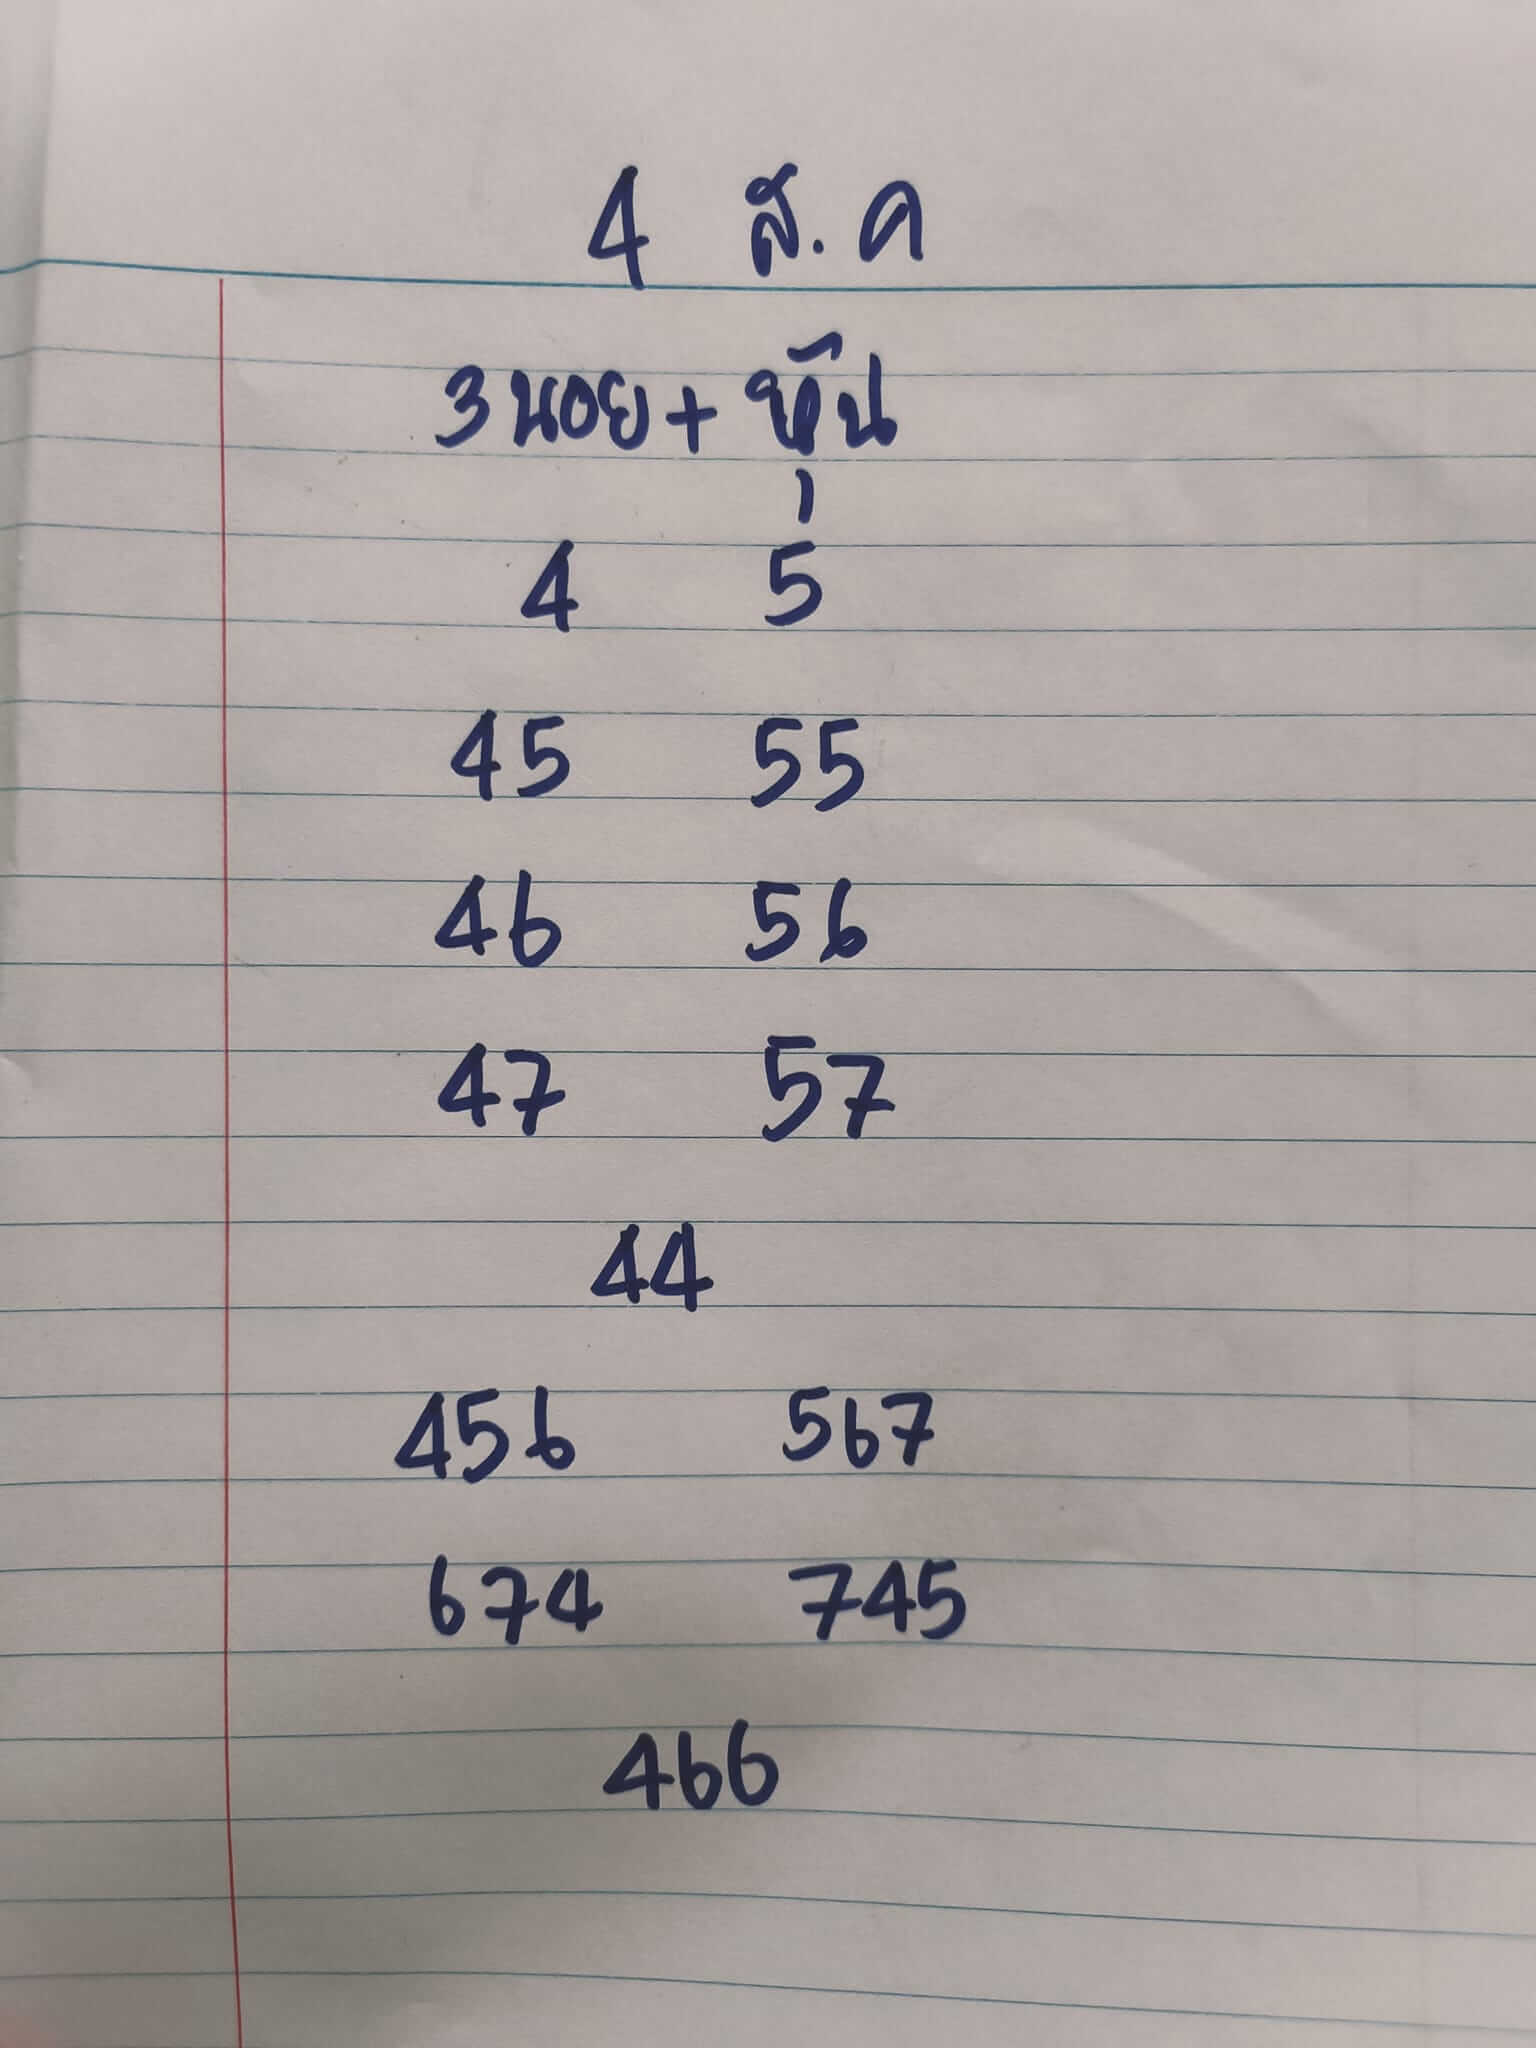 4 ส.ค
3 นอย + หุ้น
4 5
45 55
46 56
47 57
44
456 567
674 745
466